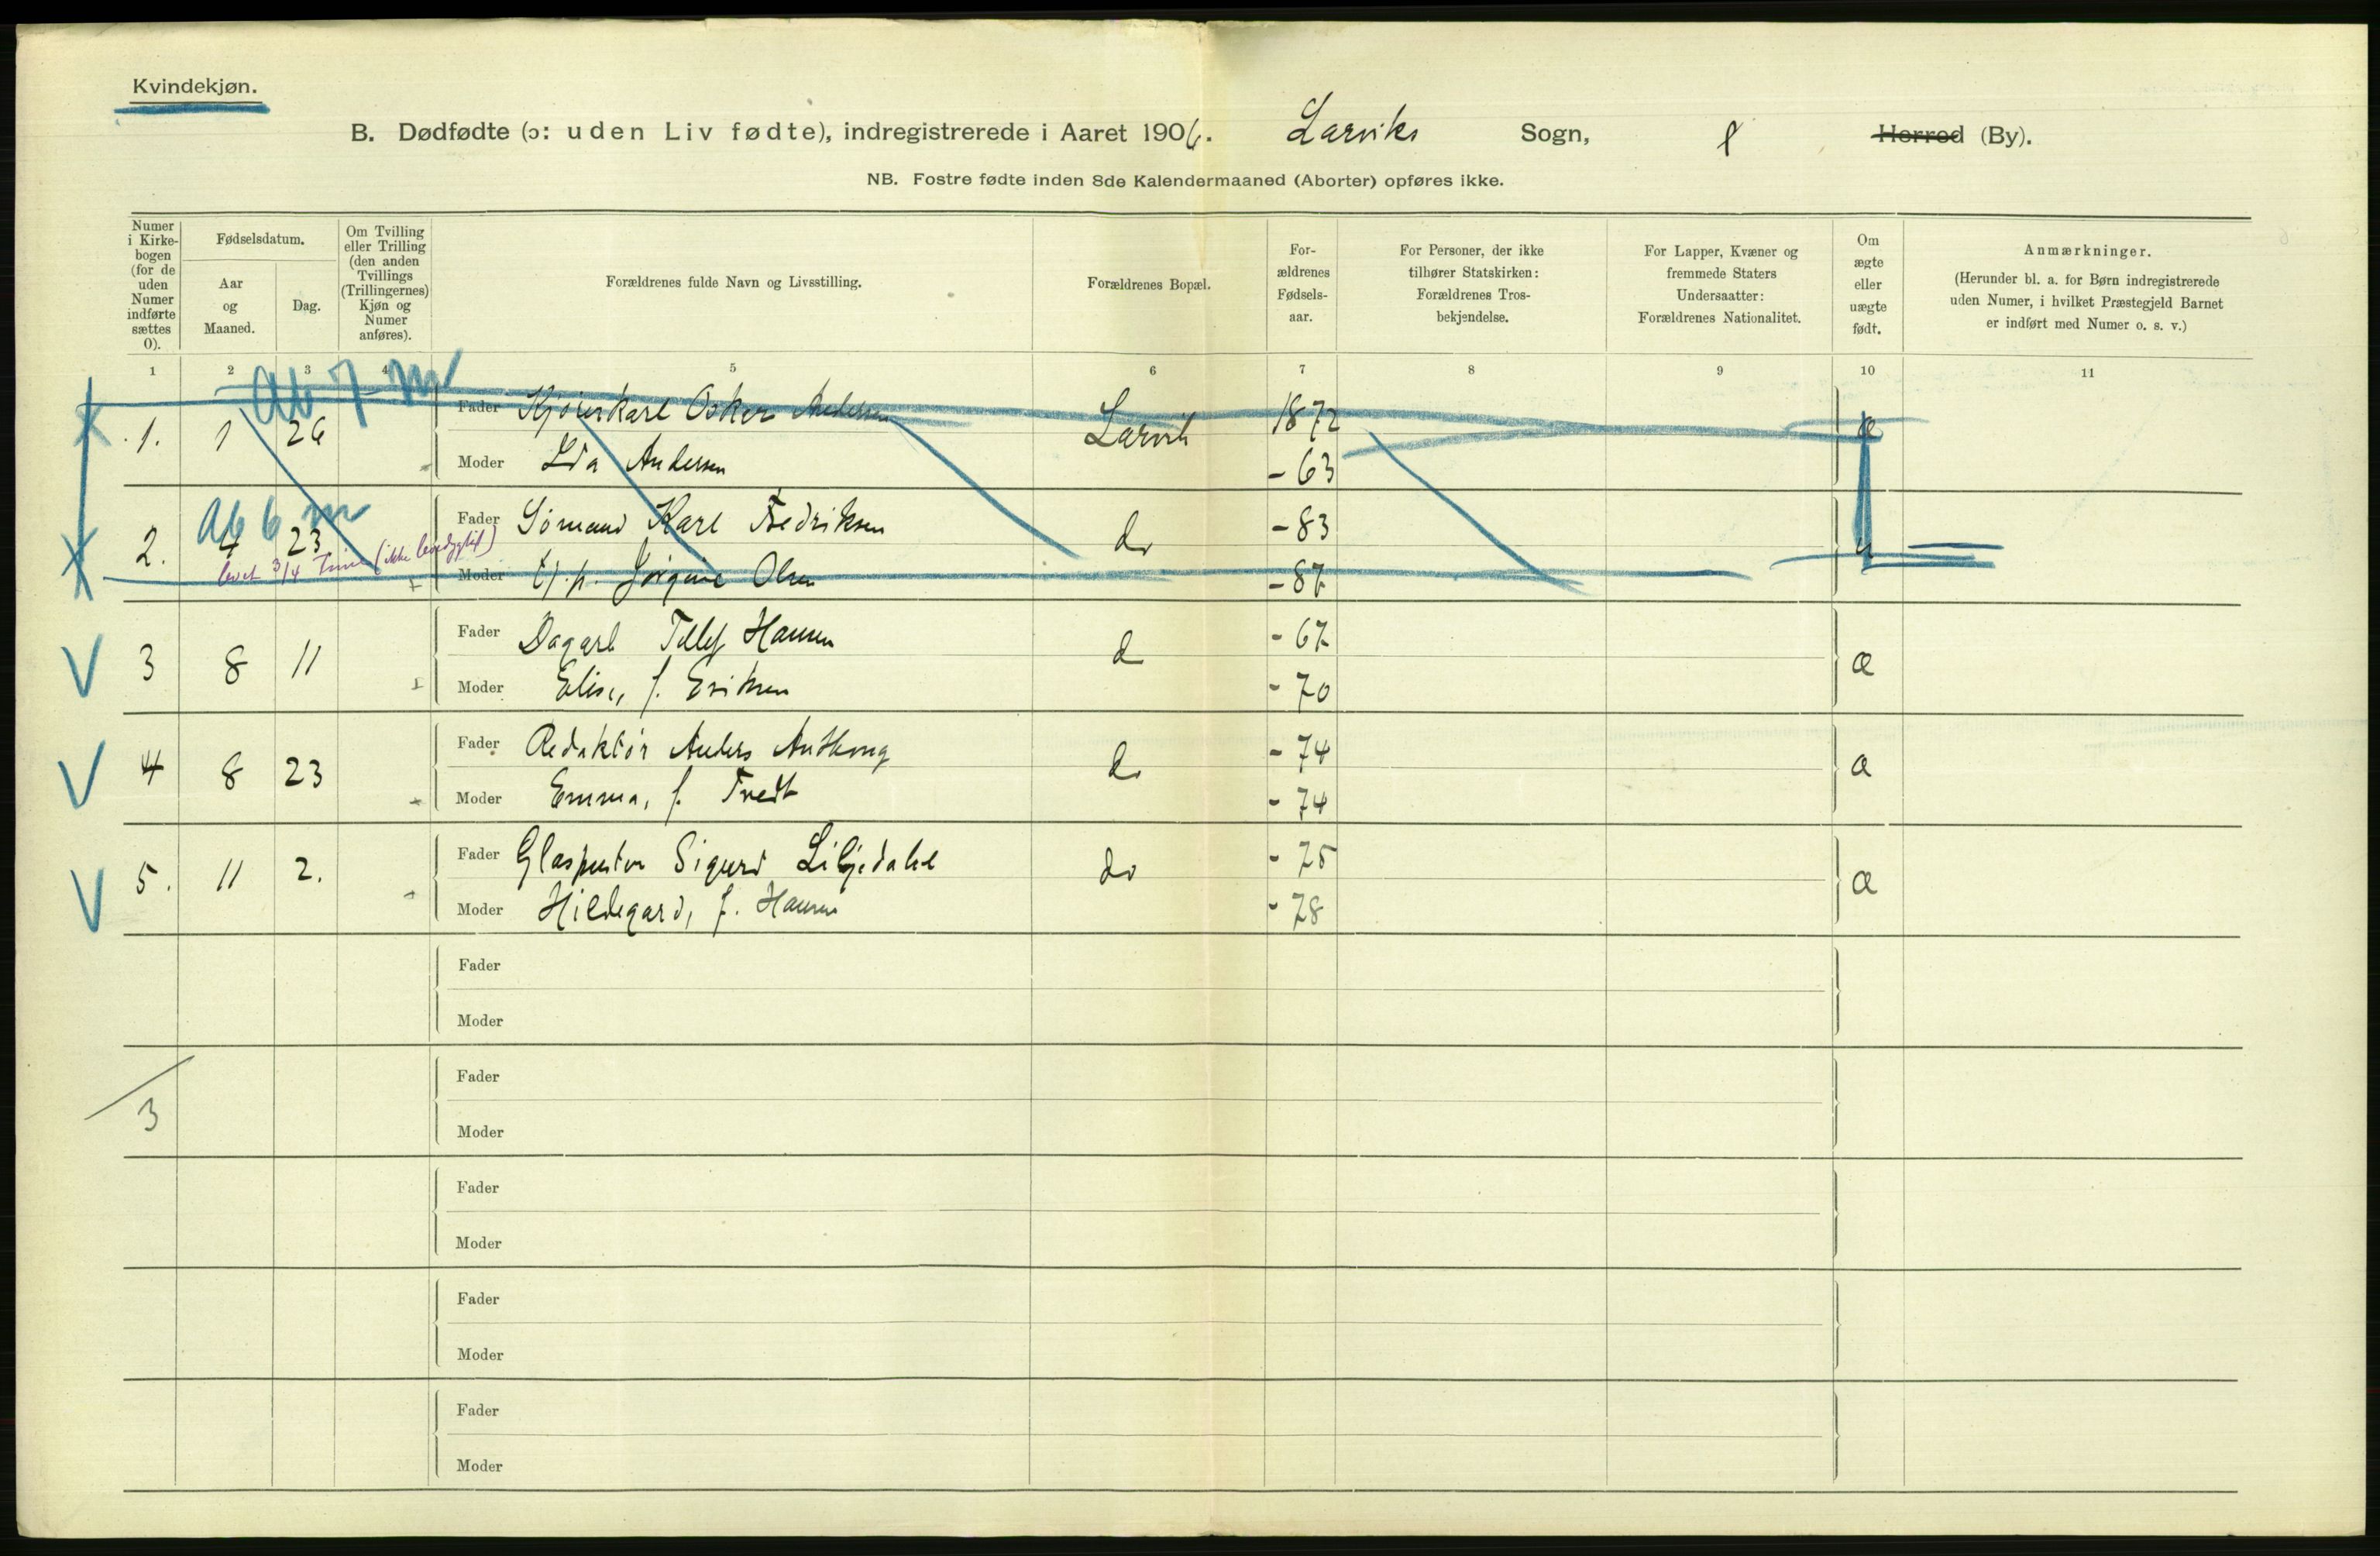 Kvindekjøn.
B. Dødfødte (ɔ: uden Liv fødte), indregistrerede i Aaret 1906. Larviks Sogn, Herred (By).
NB. Fostre fødte inden 8de Kalendermaaned (Aborter) opføres ikke.
Numer i Kirkebogen (for de uden Numer indførte sættes 0).
Fødselsdatum.
Aar og Maaned.
Dag.
Om Tvilling eller Trilling (den anden Tvillings (Trillingernes) Kjøn og Numer anføres).
Forældrenes fulde Navn og Livsstilling.
Forældrenes Bopæl.
For-ældrenes Fødsels-aar.
For Personer, der ikke tilhører Statskirken: Forældrenes Tros-bekjendelse.
For Lapper, Kvæner og fremmede Staters Undersaatter: Forældrenes Nationalitet.
Om ægte eller uægte født.
Anmærkninger.
(Herunder bl. a. for Børn indregistrerede uden Numer, i hvilket Præstegjeld Barnet er indført med Numer o. s. v.)
1 2 3 4 5 6 7 8 9 10 11
Ab 7 m
1. 1 26 Fader Kjørerkarl Oskar Andersen Larvik 1872 æ
Moder Ida Andersen - 63
Ab 6 m
2. 4 23 Fader Sømand Karl Fredriksen do - 83 u
levet 3/4 Time (ikke levedygtig)
Moder Tj.p. Jørgine Olsen - 87
3 8 11 Fader Dagarb. Tellef Hansen d - 67 æ
Moder Elise, f. Eriksen - 70
4 8 23 Fader Redaktør Anders do - 74 æ
Moder Emma, f. Tvedt - 74
5. 11 2. Fader Glaspuster Sigurd Liljedahl do - 75 æ
Moder Hildegard, f. Hansen - 78
Fader
Moder
Fader
3
Moder
Fader
Moder
Fader
Moder
Fader
Moder